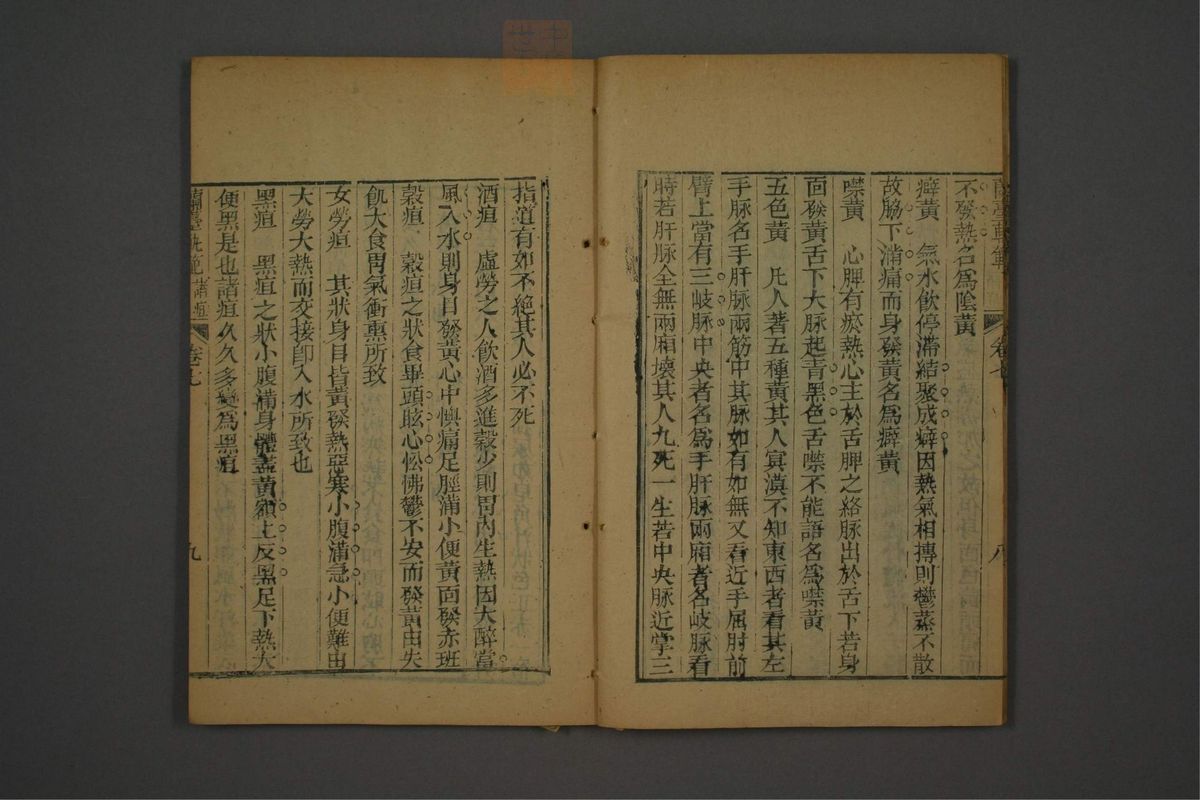 蘭臺軌範 卷七 八
不發熱名爲陰黃
癖黃 氣水飮停滯結聚成癖因熱氣相搏則鬱蒸不散
故脇下滿痛而身發黃名爲癖黃
噤黃 心脾有瘀熱心主於舌脾之絡脉出於舌下若身
面發黃舌下大脉起青黑色舌噤不能語名爲噤黃
五色黃 凡人著五種黃其人冥漠不知東西者看其左
手脉名手肝脉兩筋中其脉如有如無又看近手屈肘前
臂上當有三岐脉中央者名爲手肝脉兩廂者名岐脉看
時若肝脉全無兩廂壞其人九死一生若中央脉近掌三
指道有如不絕其人必不死
酒疸 虛勞之人飮酒多進穀少則胃內生熱因大醉當
風入水則身目發黃心中懊痛足脛滿小便黃面發赤班
穀疸 穀疸之狀食畢頭眩心忪怫鬱不安而發黃由失
飢大食胃氣衝熏所致
女勞疸 其狀身目皆黃發熱惡寒小腹滿急小便難由
大勞大熱而交接卽入水所致也
黑疸 黑疸之狀小腹滿身體盡黃額上反黑足下熱大
便黑是也諸疸久久多變爲黑疸
蘭臺軌範 諸疸 卷七 九